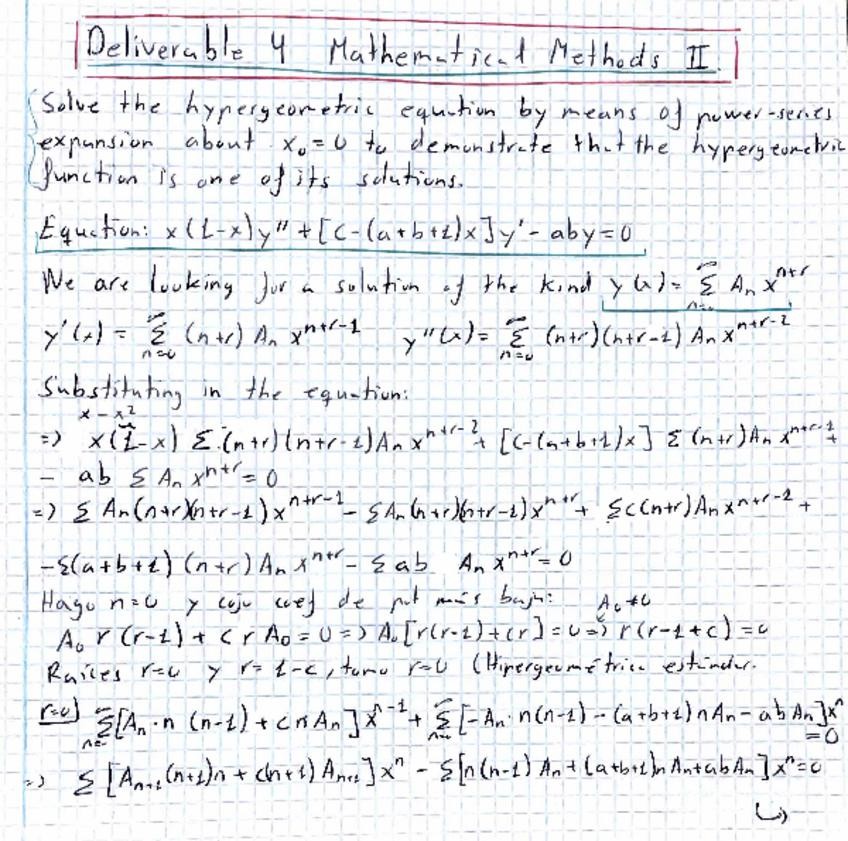 Deliverable 4 Mathematical Methods II.
Solve the hypergeometric equation by means of power-series
expansion about x₀=0 to demonstrate that the hypergeometric
function is one of its solutions.
Equation: x(1-x)y'' + [c-(a+b+1)x]y' - aby=0
We are looking for a solution of the kind y(x) = Σ_{n=0}^∞ Aₙ x^{n+r}
y'(x) = Σ_{n=0}^∞ (n+r) Aₙ x^{n+r-1} y''(x) = Σ_{n=0}^∞ (n+r)(n+r-1) Aₙ x^{n+r-2}
Substituting in the equation:
x-x²
=> x(1-x) Σ (n+r)(n+r-1) Aₙ x^{n+r-2} + [c-(a+b+1)x] Σ (n+r) Aₙ x^{n+r-1} +
- ab Σ Aₙ x^{n+r} = 0
=> Σ Aₙ(n+r)(n+r-1) x^{n+r-1} - Σ Aₙ(n+r)(n+r-1) x^{n+r} + Σ c(n+r) Aₙ x^{n+r-1} +
- Σ(a+b+1) (n+r) Aₙ x^{n+r} - Σ ab Aₙ x^{n+r} = 0
Hago n=0 y cojo coef de pot más baja: A₀≠0
A₀ r(r-1) + c r A₀ = 0 => A₀[r(r-1)+cr] = 0 => r(r-1+c) = 0
Raíces r=0 y r=1-c, tomo r=0 (Hipergeométrica estándar.
r=0) Σ_{n=0}^∞ [Aₙ·n (n-1) + cnAₙ] x^{n-1} + Σ_{n=0}^∞ [-Aₙ·n(n-1) - (a+b+1)nAₙ - abAₙ] xⁿ
=0
=> Σ [A_{n+1}(n+1)n + c(n+1) A_{n+1}] xⁿ - Σ[n(n-1) Aₙ + (a+b+1)nAₙ + abAₙ] xⁿ = 0
↳